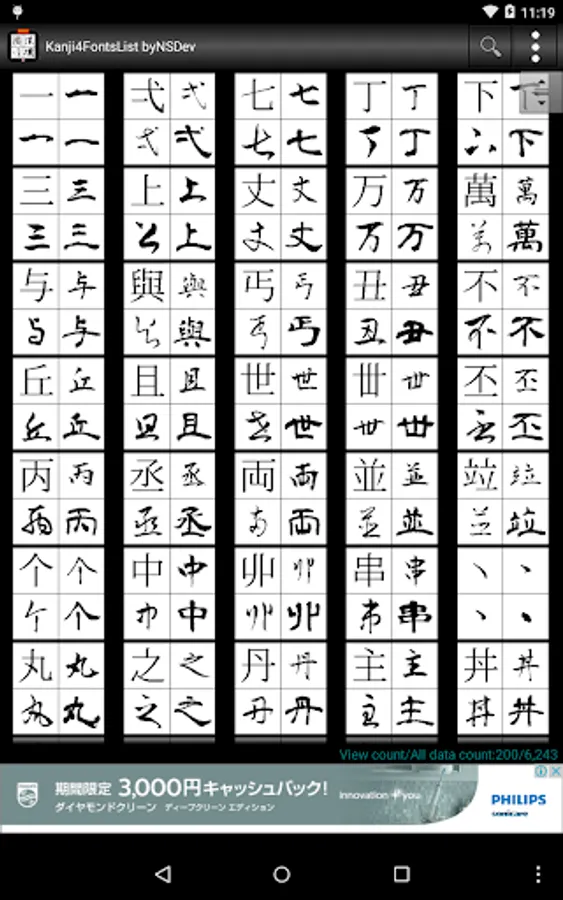 11:19
Kanji4FontsList byNSDev
一一 弍弍 七七 丁丁 下下
一一 弍弍 七七 丁丁 下下
三三 上上 丈丈 万万 萬萬
三三 上上 丈丈 万万 萬萬
与与 與與 丐丐 丑丑 不不
与与 與與 丐丐 丑丑 不不
丘丘 且且 世世 丗丗 丕丕
丘丘 且且 世世 丗丗 丕丕
丙丙 丞丞 両両 並並 竝竝
丙丙 丞丞 両両 並並 竝竝
个个 中中 丱丱 串串 丶丶
个个 中中 丱丱 串串 丶丶
丸丸 之之 丹丹 主主 丼丼
丸丸 之之 丹丹 主主 丼丼
View count/All data count:200/6,243
期間限定 3,000円キャッシュバック!
ダイヤモンドクリーン ディープクリーン エディション
innovation + you
PHILIPS
sonicare